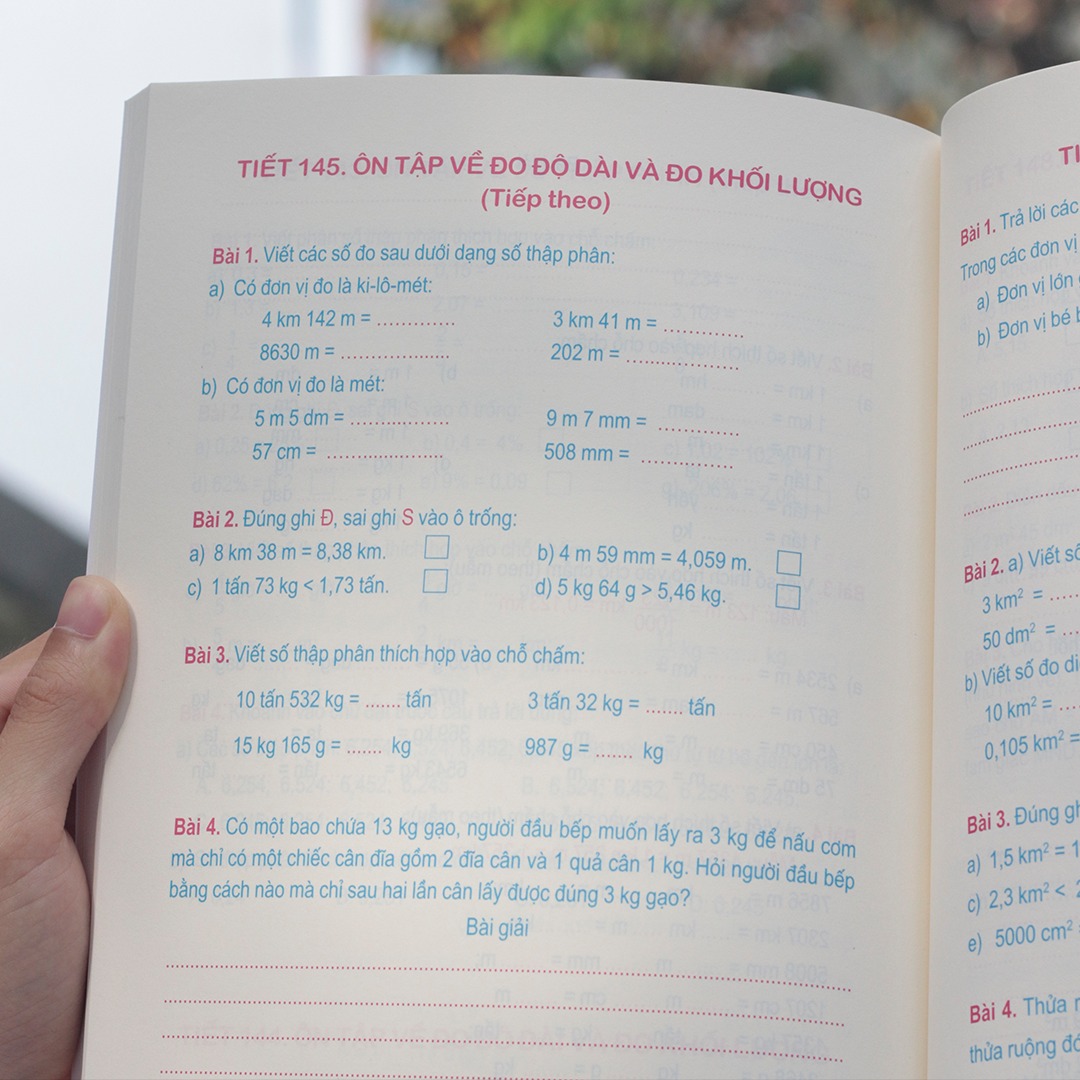 TIẾT 145. ÔN TẬP VỀ ĐO ĐỘ DÀI VÀ ĐO KHỐI LƯỢNG
(Tiếp theo)
Bài 1. Viết các số đo sau dưới dạng số thập phân:
a) Có đơn vị đo là ki-lô-mét:
4 km 142 m = .............. 3 km 41 m = ..............
8630 m = .................... 202 m = ....................
b) Có đơn vị đo là mét:
5 m 5 dm = .................. 9 m 7 mm = ...............
57 cm = ..................... 508 mm = ................
Bài 2. Đúng ghi Đ, sai ghi S vào ô trống:
a) 8 km 38 m = 8,38 km. □ b) 4 m 59 mm = 4,059 m. □
c) 1 tấn 73 kg < 1,73 tấn. □ d) 5 kg 64 g > 5,46 kg. □
Bài 3. Viết số thập phân thích hợp vào chỗ chấm:
10 tấn 532 kg = ....... tấn 3 tấn 32 kg = ....... tấn
15 kg 165 g = ....... kg 987 g = ....... kg
Bài 4. Có một bao chứa 13 kg gạo, người đầu bếp muốn lấy ra 3 kg để nấu cơm
mà chỉ có một chiếc cân đĩa gồm 2 đĩa cân và 1 quả cân 1 kg. Hỏi người đầu bếp
bằng cách nào mà chỉ sau hai lần cân lấy được đúng 3 kg gạo?
Bài giải
TI
Bài 1. Trả lời các
Trong các đơn vị
a) Đơn vị lớn
b) Đơn vị bé
Bài 2. a) Viết số
3 km² = .....
50 dm² = ...
b) Viết số đo
10 km² = ....
0,105 km² =
Bài 3. Đúng
a) 1,5 km² = 1
c) 2,3 km² <
e) 5000 cm²
Bài 4. Thửa
thửa ruộng đó